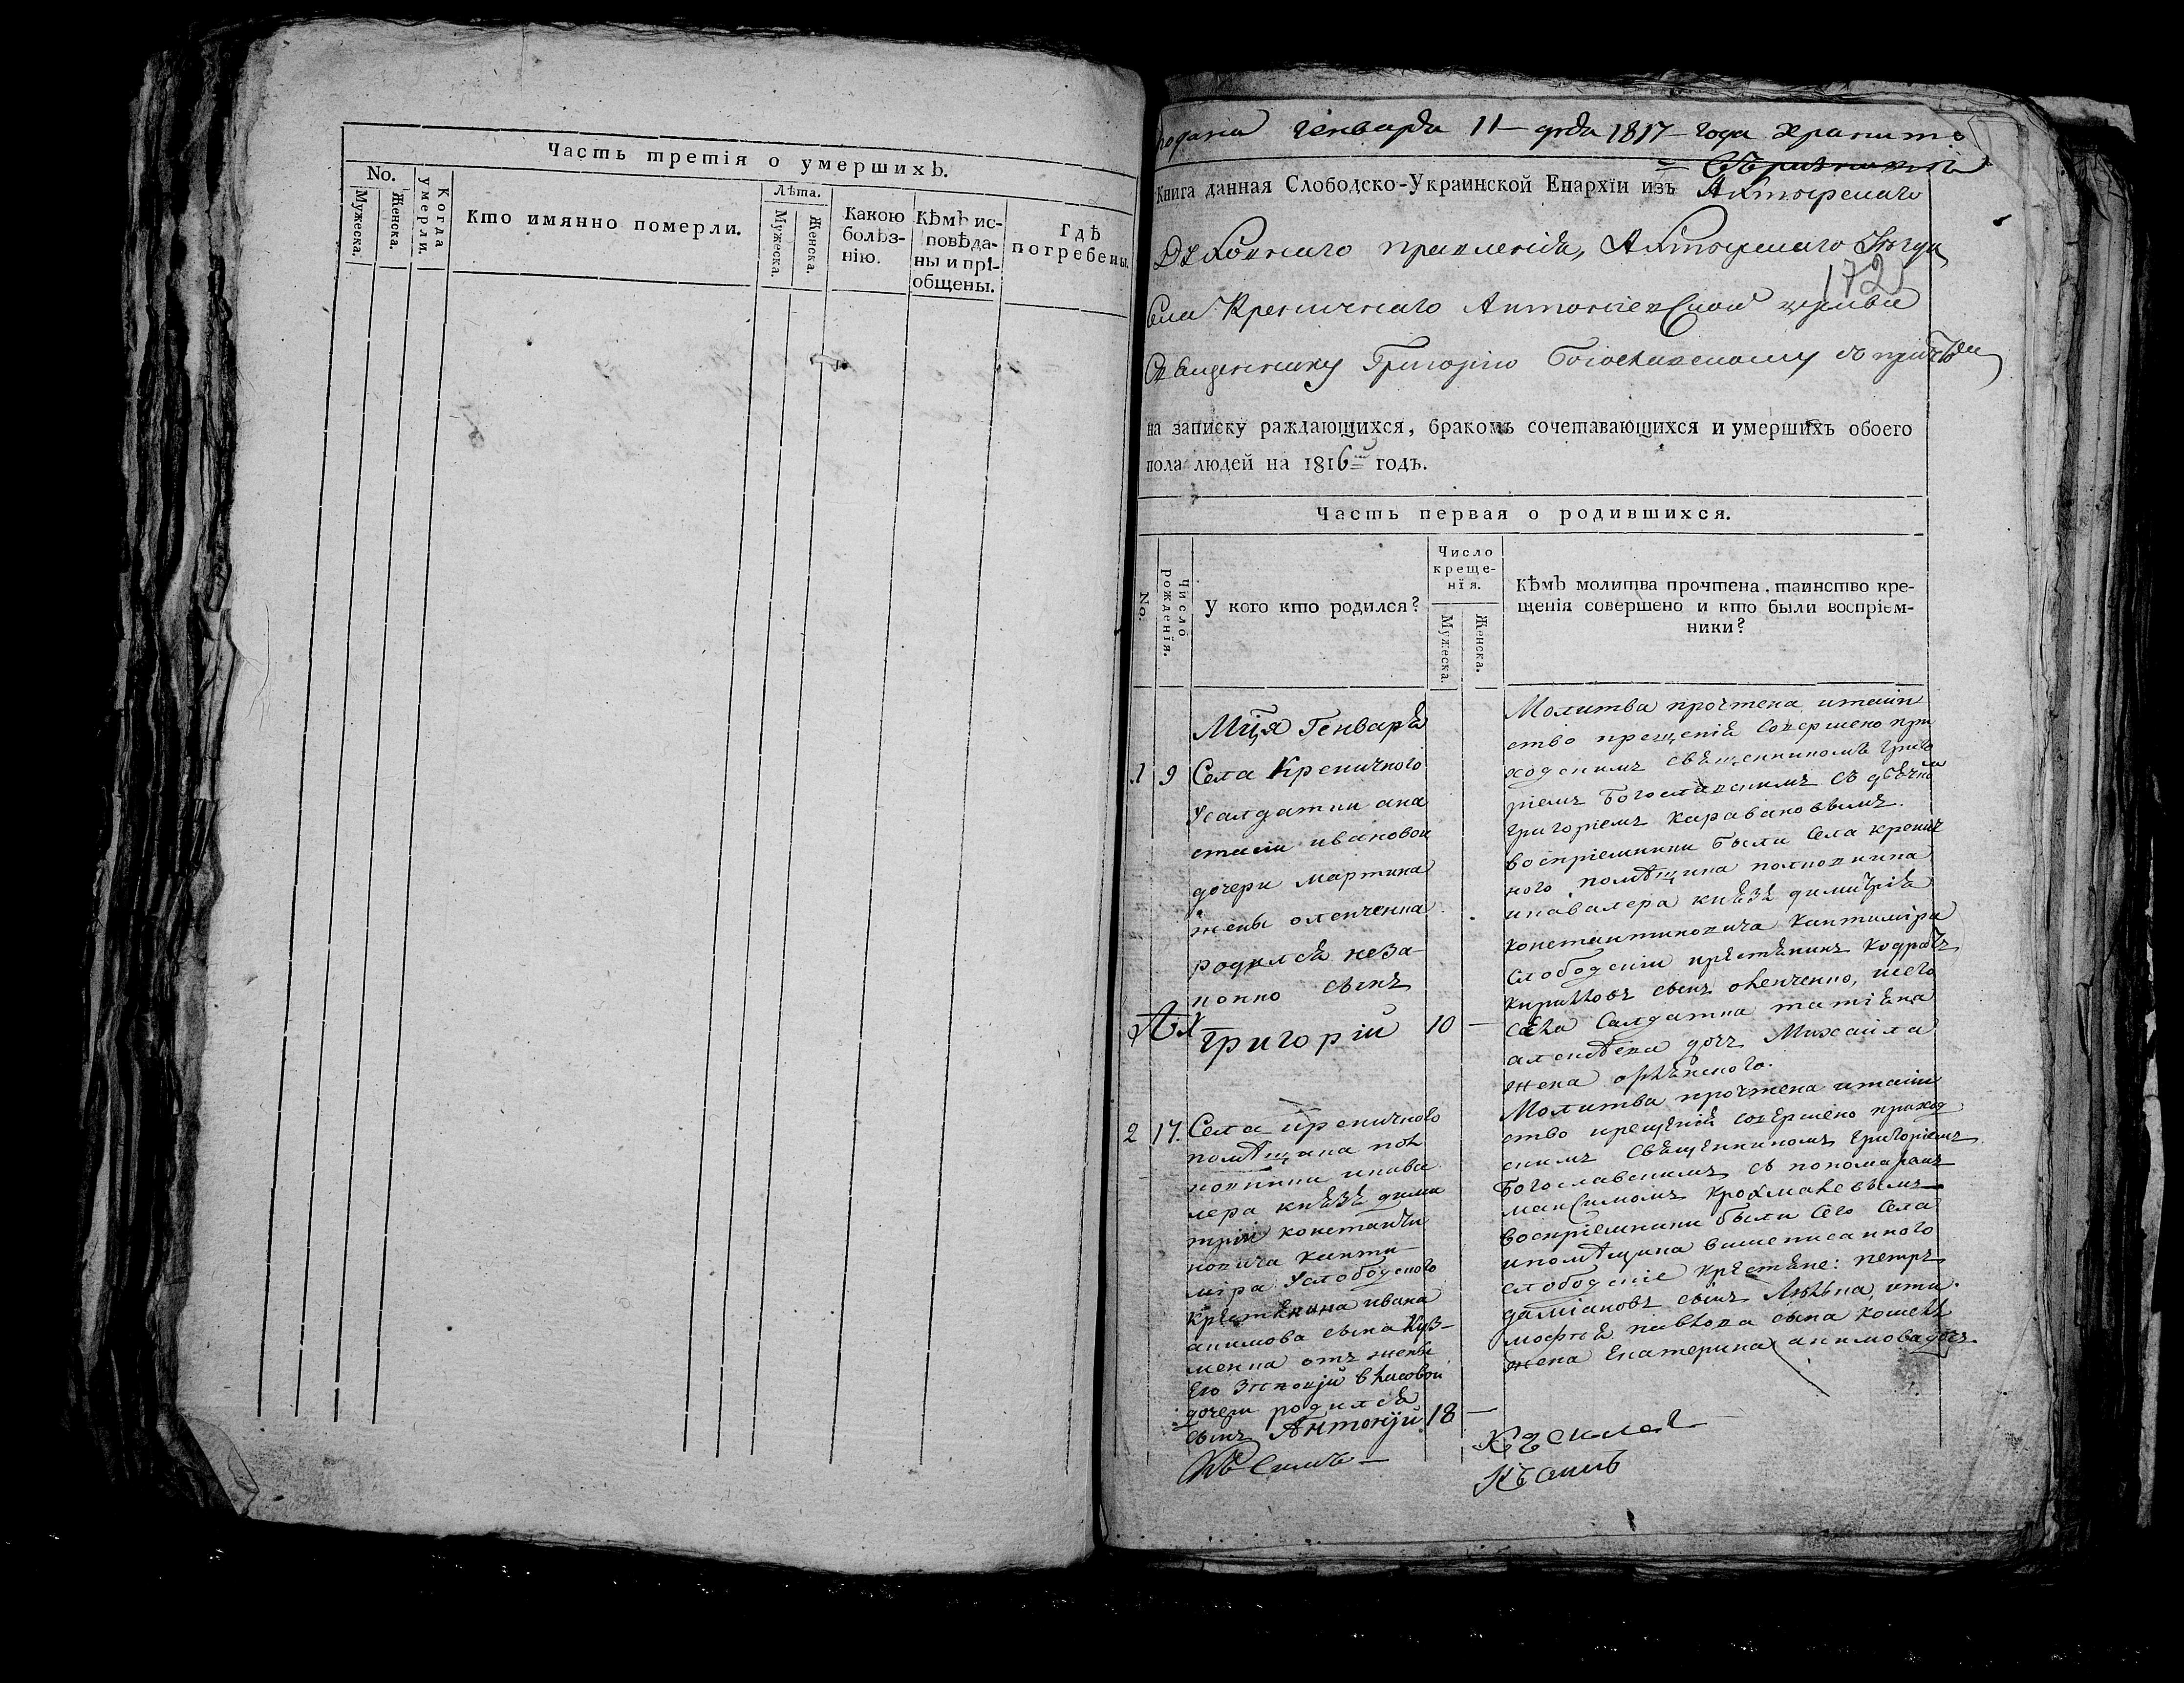 Часть третія о умершихъ.
No.
Мужеска.
Женска.
Когда умерли.
Кто имянно померли.
Лѣта.
Мужеска.
Женска.
Какою болѣз-
нію.
Кѣмъ ис-
повѣда-
ны и прі-
общены.
Гдѣ
погребены.
подана генваря 11 дня 1817 года хранить
Книга данная Слободско-Украинской Епархїи изъ Ахтырскаго
Духовнаго правленія, Ахтырскаго уѣзда
172
Села Креничнаго Антоніевской церкви
Священнику Григорію Богославскому съ причтомъ
на записку раждающихся, бракомъ сочетавающихся и умершихъ обоего
пола людей на 1816й годъ.
Часть первая о родившихся.
No.
Число рожденїя.
У кого кто родился?
Число
креще-
нїя.
Мужеска.
Женска.
Кѣмъ молитва прочтена, таинство кре-
щенїя совершено и кто были воспрїем-
ники?
Мця Генваря
1 9 Села Креничного
усалдатки ана
стасіи ивановой
дочери мартина
жены оленченка
родился неза
конно сынъ
григорій 10 —
Молитва прочтена итаин
ство крещенія совершено при
ходскимъ священникомъ григо
ріемъ Богославскимъ съ дячкомъ
григоріемъ каравановымъ.
воспріемники были села кренич
ного помѣщика полковника
икавалера князя димитрія
константиновича кантиміра
слободскій крестянинъ кодратъ
кириловъ сынъ оленченко, исего
села салдатка татіяна
алексѣева дочъ Михаила
жена орлянского.
2 17. Села креничного
помѣщика пол
ковника икава
лера князя дими
трія константи
новича канти
міра услободского
крестянина ивана
акимова сына куз-
менка отъ жены
его Зиновіи власовой
дочери родился
сынъ Антоній 18 —
Молитва прочтена итаин
ство крещенія совершено приход
скимъ священникомъ григоріемъ
Богославскимъ съ пономаремъ
максимомъ крохмалевымъ
воспріемники были сего села
ипомѣщика вишеписанного
слободскіе крестяне: петръ
даміановъ сынъ
мофѣя павлова сына
жена екатерина акимова дочъ.